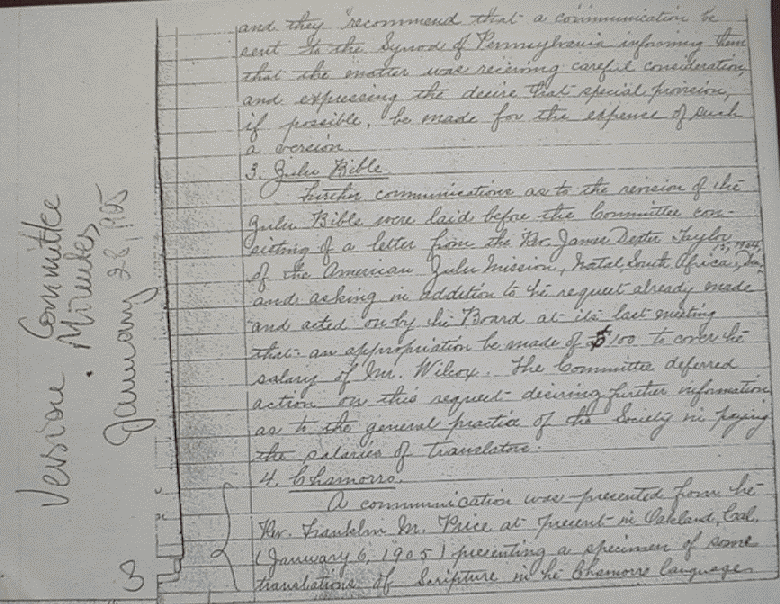 Version Committee
Minutes
January 28, 1905
and they recommend that a communication be
sent to the Synod of Pennsylvania informing them
that the matter was receiving careful consideration,
and expressing the desire that special provision,
if possible, be made for the expense of such
a version.
3. Zulu Bible.
Further communications as to the revision of the
Zulu Bible were laid before the Committee con-
sisting of a letter from the Rev. James Dexter Taylor
of the American Zulu Mission, Natal, South Africa,
and asking in addition to the request already made
and acted on by the Board at its last meeting
that an appropriation be made of $100 to cover the
salary of Mr. Wilcox. The Committee deferred
action on this request desiring further information
as to the general practice of the Society in paying
the salaries of translators.
4. Chamorro.
A communication was presented from the
Rev. Franklin M. Price at present in Oakland, Cal.
(January 6, 1905) presenting a specimen of some
translations of Scripture in the Chamorro language